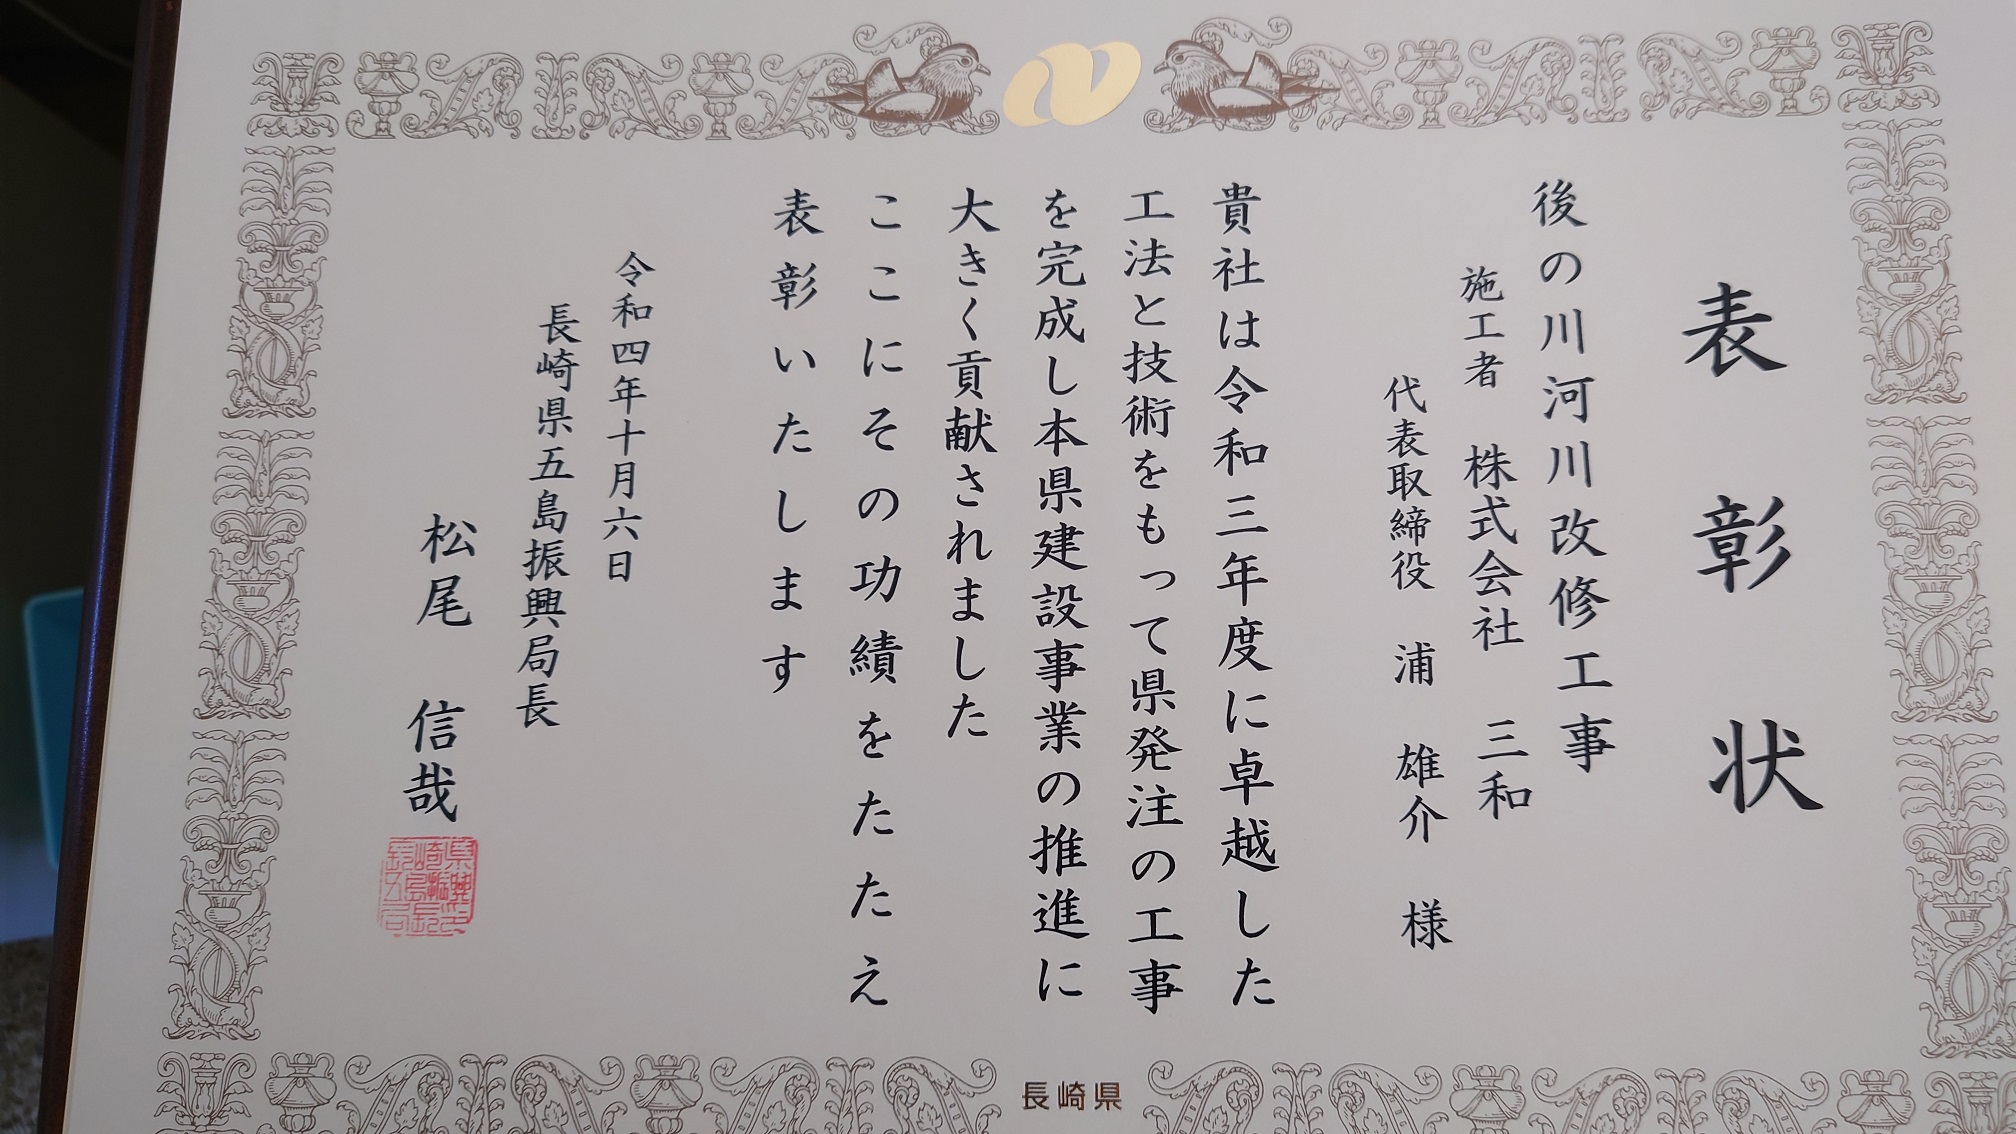 表彰状
後の川河川改修工事
施工者 株式会社 三和
代表取締役 浦 雄介 様
貴社は令和三年度に卓越した
工法と技術をもって県発注の工事
を完成し本県建設事業の推進に
大きく貢献されました
ここにその功績をたたえ
表彰いたします
令和四年十月六日
長崎県五島振興局長
松尾 信哉
長崎県